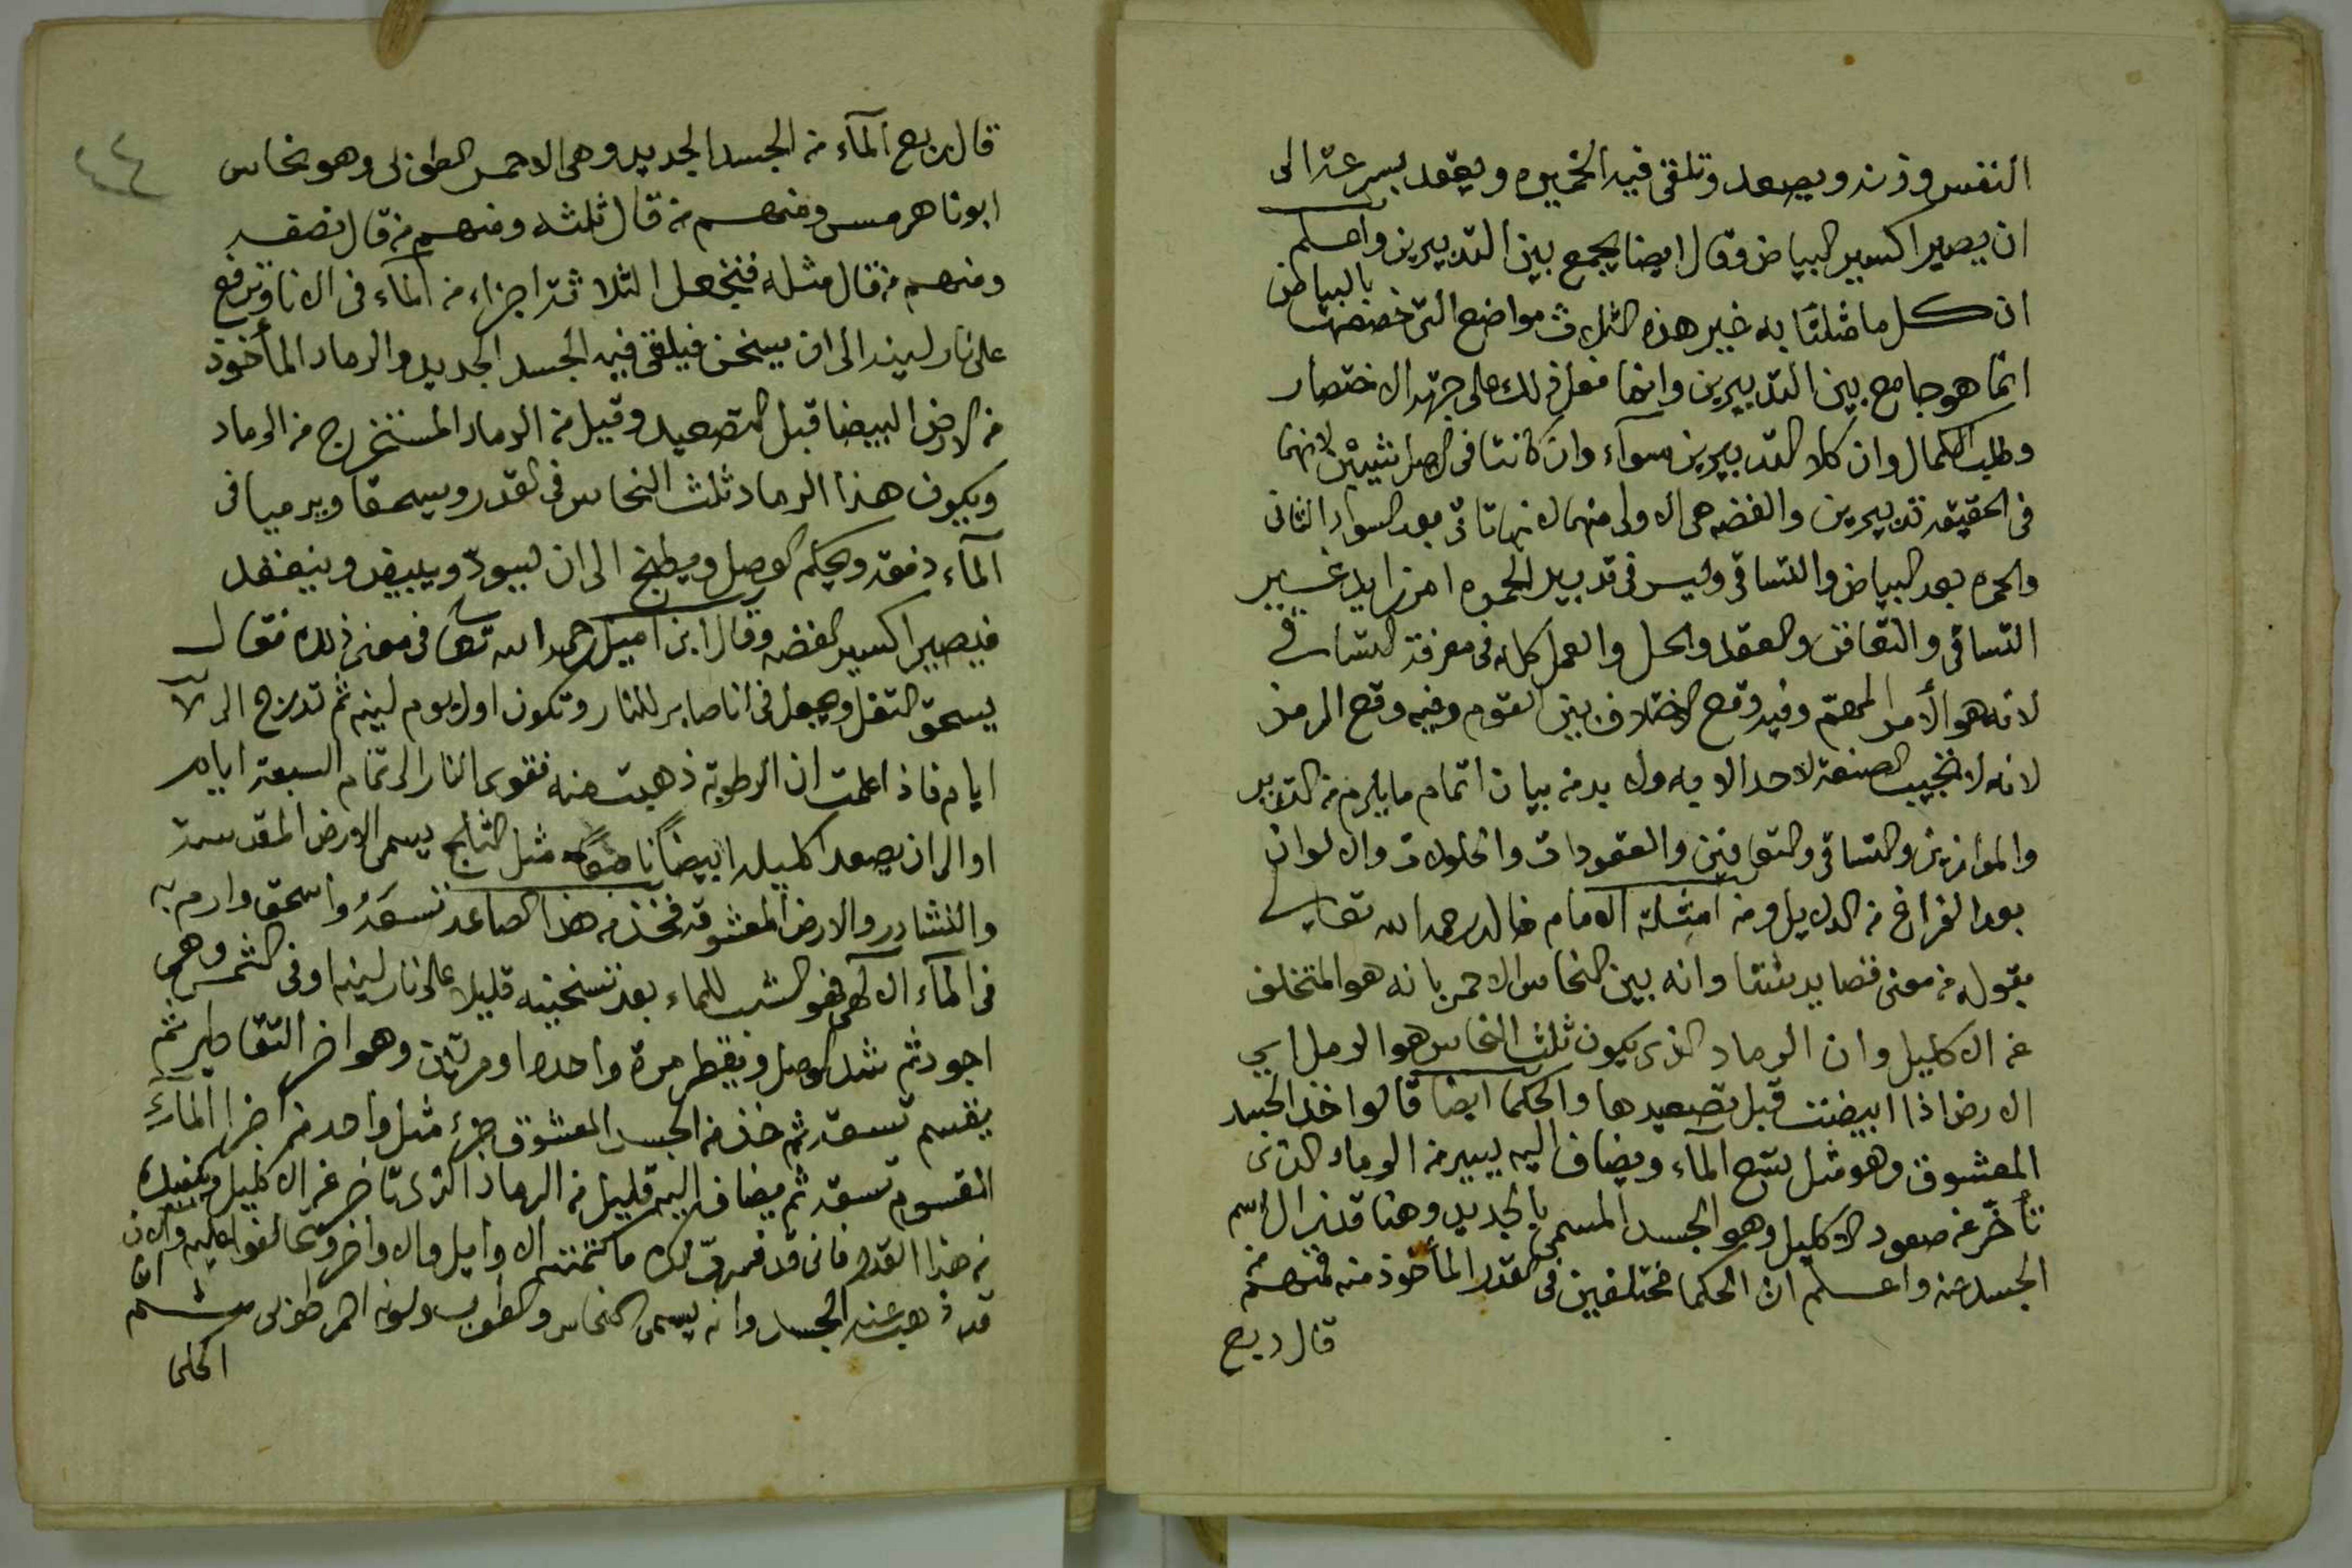 النفس وزنه ويصعد وتلقى فيه الخميره ويعقد بسرعة الى
ان يصير اكسير البياض وقال ايضا يجمع بين التدبيرين واعلم
ان كل ما مثلنا به خير هذه الثلاث مواضع التى خصصتها بالبياض
انما هو جامع بين التدبيرين وانما فعل ذلك على جهة الاختصار
وطلب الكمال وان كلا التدبيرين سوآء وان كانتا فى الاصل شيئين لانهما
فى الحقيقه تدبيرين والفضه هى الاولى منهما لانها تاتى بعد السواد الثانى
والحمره بعد البياض والتساقى وليس فى تدبير الحمره امر زايد غير
التساقى والتعافن والعقد والحل والعمل كله فى معرفة التساقى
لانه هو الأمر المهم وفيه وقع الاختلاف بين القوم وفيه وقع الرمز
لانه لا تجيب الصنعة لاحد الا به ولا بد من بيان اتمام ما يلزم من التدبير
والموازين والتساقى والتعافين والعقودات والحلولات والالوان
بعد الفراغ من الدلايل ومن امثلة الامام خالد رحمه الله تعالى
بقوله من معنى قصايد شتا وانه بين النحاس الاحمر بانه هو المتخلف
عن الاكليل وان الرماد الذى يكون ثلث النحاس هو الرمل اى
الارض اذا ابيضت قبل تصعيدها والحكما ايضا قالوا خذ الجسد
المعشوق وهو مثل ربع المآء ويضاف اليه يسير من الرماد الذى
تأخّر عن صعود الاكليل وهو الجسد المسمى بالجديد وهنا قد زال اسم
الجسد عنه واعلم ان الحكما مختلفين فى القدر المأخوذ منه فمنهم من
قال ربع
٤٤
قال ربع المآء من الجسد الجديد وهى الاحمر الطوبى وهو نحاس
ابونا هرمس ومنهم من قال ثلثه ومنهم من قال نصفه
ومنهم من قال مثله فتجعل الثلاثة اجزاء من المآء فى الانا وترفع
على نار لينه الى ان يسخن فيلقى فيه الجسد الجديد والرماد المأخوذ
من الارض البيضا قبل التصعيد وقيل من الرماد المستخرج من الرماد
ويكون هذا الرماد ثلث النحاس فى القدر ويسحقا ويرميا فى
المآء دفعة ويحكم الوصل ويطبخ الى ان يسودّ ويبيض وينعقد
فيصير اكسير الفضه وقال ابن اميل رحمه الله تعالى فى معنى ذلك فقال
يسحق الثفل ويجعل فى انا صابر للنار وتكون اول يوم لينه ثم تدرج الى
ايام فاذا علمت ان الرطوبة ذهبت منه فقوى النار الى تمام السبعة ايام
او الى ان يصعد اكليلا ابيضاً ناصعاً مثل الثلج يسمى الارض المقدسة
والنشادر والارض المعشوقه فخذ من هذا الصاعد تسعه واسحق وارم به
فى المآء الالهى فهو الشب للماء بعد تسخينه قليلا على نار لينه او فى الشمس وهى
اجود ثم شد الوصل ويقطر مرة واحده او مرتان وهو اخر التقاطير ثم
يقسم تسعه ثم خذ من الجسد المعشوق جزء مثل واحد من اجزا المآء
المقسوم تسعه ثم يضاف اليه قليل من الرماد الذى تاخر عن الاكليل
من هذا القدر فانى قد ما كتمته الاوايل والاواخر وتحالفوا عليه والان
قد ذهب عنه الجسد وانه يسمى النحاس والطوب ولونه احمر طوبى
الحلى